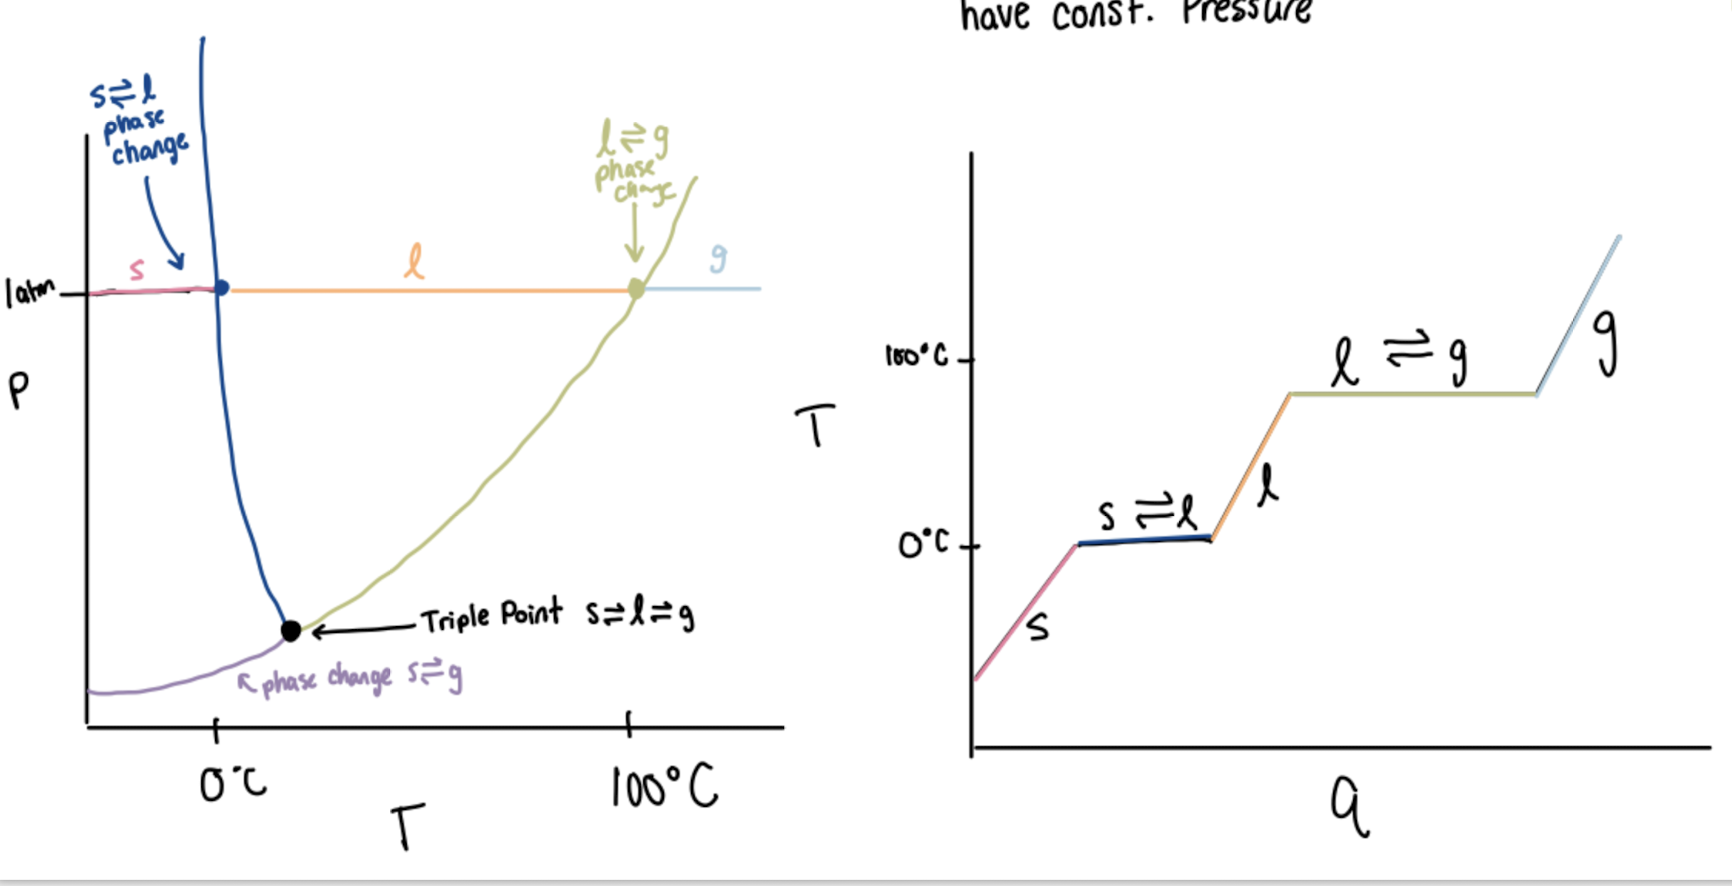 have const. Pressure
s⇌l
phase
change
l⇌g
phase
change
s
l
g
1atm
P
Triple Point s⇌l⇌g
phase change s⇌g
0°C
100°C
T
100°C
l ⇌ g
g
T
s ⇌ l
l
0°C
s
q